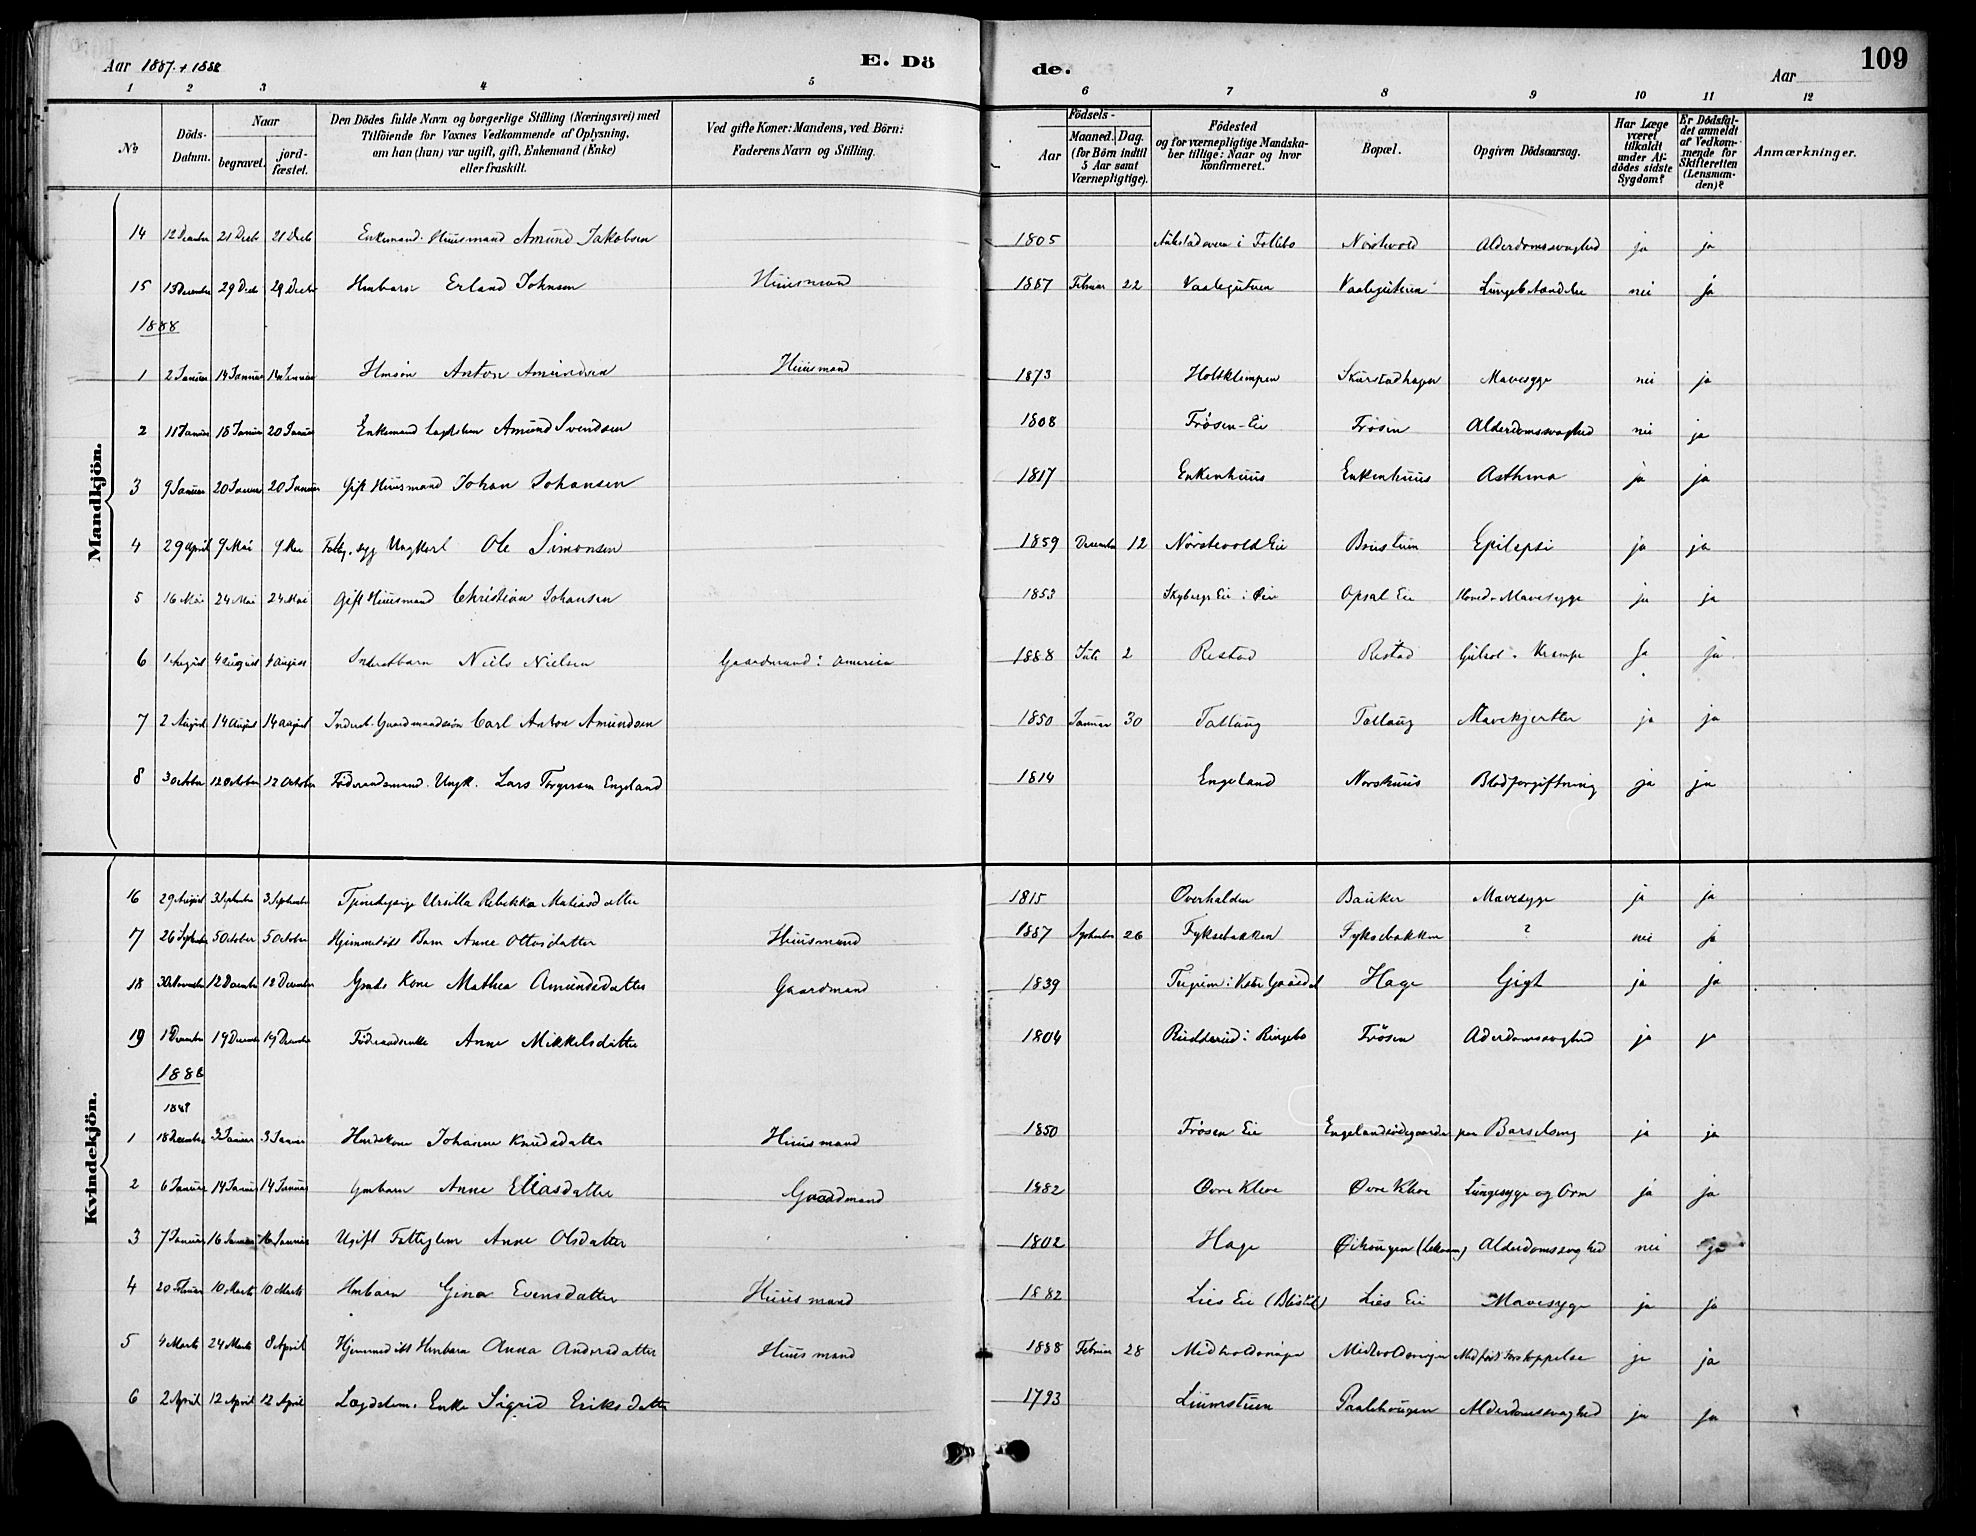 Aar 1887 + 1888
E. Dö
de.
Aar
109
1 2 3 4 5 6 7 8 9 10 11 12
No
Döds-Datum.
Naar
begravet.
jord-fæstet.
Den Dödes fulde Navn og borgerlige Stilling (Næringsvei) med
Tilföiende for Voxnes Vedkommende af Oplysning,
om han (hun) var ugift, gift, Enkemand (Enke)
eller fraskilt.
Ved gifte Koner: Mandens, ved Börn:
Faderens Navn og Stilling.
Födsels-
Aar
Maaned. Dag.
(for Börn indtil
5 Aar samt
Værnepligtige).
Födested
og for værnepligtige Mandska-
ber tillige: Naar og hvor
konfirmeret.
Bopæl.
Opgiven Dödsaarsag.
Har Læge
været
tilkaldt
under Af-
dödes sidste
Sygdom?
Er Dödsfal-
det anmeldt
af Vedkom-
mende for
Skifteretten
(Lensman-
den)?
Anmærkninger.
Mandkjön.
14 12 December 21 Decb 21 Decb Enkemand. Huusmand Amund Jakobsen 1805 i Follebo Alderdomssvaghed ja ja
15 13 December 29 Decb 29 Decbr Hmbarn Erland Johnsen Huusmand 1887 Februar 22 Vaalegutuen Vaalegutuen Lungebetændelse nei ja
1888
1 2 Januar 14 Januar 14 Januar Hmsøn Anton Amundsen Huusmand 1873 Holsklimpen Skurstadhagen Mavesyge nei ja
2 11 Januar 18 Januar 20 Januar Enkemand Lægdslem Amund Svendsen 1808 Frøsen-Eie Frøsen Alderdomssvaghed nei ja
3 9 Januar 20 Januar 20 Januar Gift Huusmand Johan Johansen 1817 Enkenhuus Enkenhuus Asthma ja ja
4 29 April 9 Mai 9 Mai Fattig. syg Ungkarl Ole Simonsen 1859 December 12 Nørstevold Eie Epilepsi ja ja
5 16 Mai 24 Mai 24 Mai Gift Huusmand Christian Johansen 1853 Skyberg Eie i Øier Opsal Eie Hoved. Mavesyge ja ja
6 1 August 4 August 4 August Inderstbarn Niels Nielsen Gaardmand i America 1888 Juli 2 Restad Restad Gulsot. Krampe ja ja
7 2 August 14 August 14 August Inderst. Gaardmandssøn Carl Anton Amundsen 1850 Januar 30 Tallaug Tallaug Mavekjertler ja ja
8 3 October 12 October 12 October Föderaadsmand. Ungk. Lars Torgersen Engeland 1814 Engeland Norshuus Blodforgiftning ja ja
Kvindekjön.
16 29 August 3 September 3 September Ursilla Rebekka Matiasdatter 1815 Overhalden Bauker Mavesyge ja ja
17 26 Septbr 5 October 5 October Hjemmedøbt Barn Anne Ottosdatter Huusmand 1887 September 26 Fyksebakken Fyksebakken ? nei ja
18 30 November 12 December 12 December Gmds Kone Mathea Amundsdatter Gaardmand 1839 Hage Gigt ja ja
19 1 December 19 December 19 December Föderaadsenke Anne Mikkelsdatter 1804 Rudderud i Ringebo Frøsen Aderdomssvaghed ja ja
1888
1887
1 18 December 3 Januar 3 Januar Hmdskone Johanne Knudsdatter Huusmand 1850 Frøsen Eie Engelandsødegaarden Barselseng ja ja
2 6 Januar 14 Januar 14 Januar Gmbarn Anne Eliasdatter Gaardmand 1882 Øvre Kleve Øvre Kleve Lungesyge og Orm ja ja
3 7 Januar 16 Januar 16 Januar Ugift Fattiglem Anne Olsdatter 1802 Hage Alderdomssvaghed nei ja
4 20 Februar 10 Marts 10 Marts Hmbarn Gina Evensdatter Huusmand 1882 Lies Eie Lies Eie Mavesyge ja ja
5 4 Marts 24 Marts 8 April Hjemmedøbt Hmbarn Anna Andersdatter Huusmand 1888 Februar 28 Midtvoldsvingen Midtvoldsvingen Medfødt Forstoppelse ja ja
6 2 April 12 April 12 April Lægdslem. Enke Sigrid Eriksdatter 1793 Liumstuen Paalehaugen Alderdomssvaghed ja ja